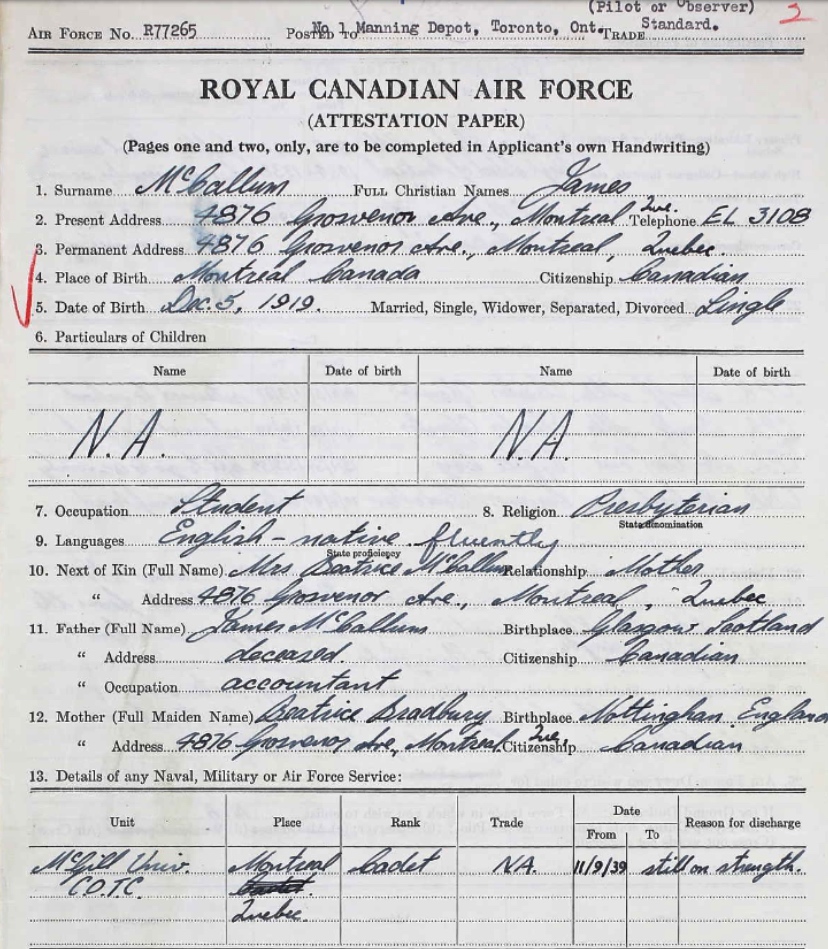 (Pilot or Observer)
2
AIR FORCE No. R77265 POSTED TO No. 1 Manning Depot, Toronto, Ont. TRADE Standard.
ROYAL CANADIAN AIR FORCE
(ATTESTATION PAPER)
(Pages one and two, only, are to be completed in Applicant's own Handwriting)
1. Surname McCallum FULL Christian Names James
2. Present Address 4876 Grosvenor Ave., Montreal Que. Telephone EL 3108
3. Permanent Address 4876 Grosvenor Ave., Montreal, Quebec
4. Place of Birth Montreal Canada Citizenship Canadian
5. Date of Birth Dec. 5, 1919. Married, Single, Widower, Separated, Divorced Single
6. Particulars of Children
Name Date of birth Name Date of birth
N.A. N.A.
7. Occupation Student 8. Religion Presbyterian
State denomination
9. Languages English - native fluently
State proficiency
10. Next of Kin (Full Name) Mrs Beatrice McCallum Relationship Mother
" Address 4876 Grosvenor Ave., Montreal, Quebec
11. Father (Full Name) James McCallum Birthplace Glasgow Scotland
" Address deceased. Citizenship Canadian
" Occupation accountant
12. Mother (Full Maiden Name) Beatrice Bradbury Birthplace Nottingham England
" Address 4876 Grosvenor Ave, Montreal Que. Citizenship Canadian
13. Details of any Naval, Military or Air Force Service:
Unit Place Rank Trade Date Reason for discharge
From To
McGill Univ. Montreal Cadet N.A. 11/9/39 still on strength.
C.O.T.C. Cadet.
Quebec.